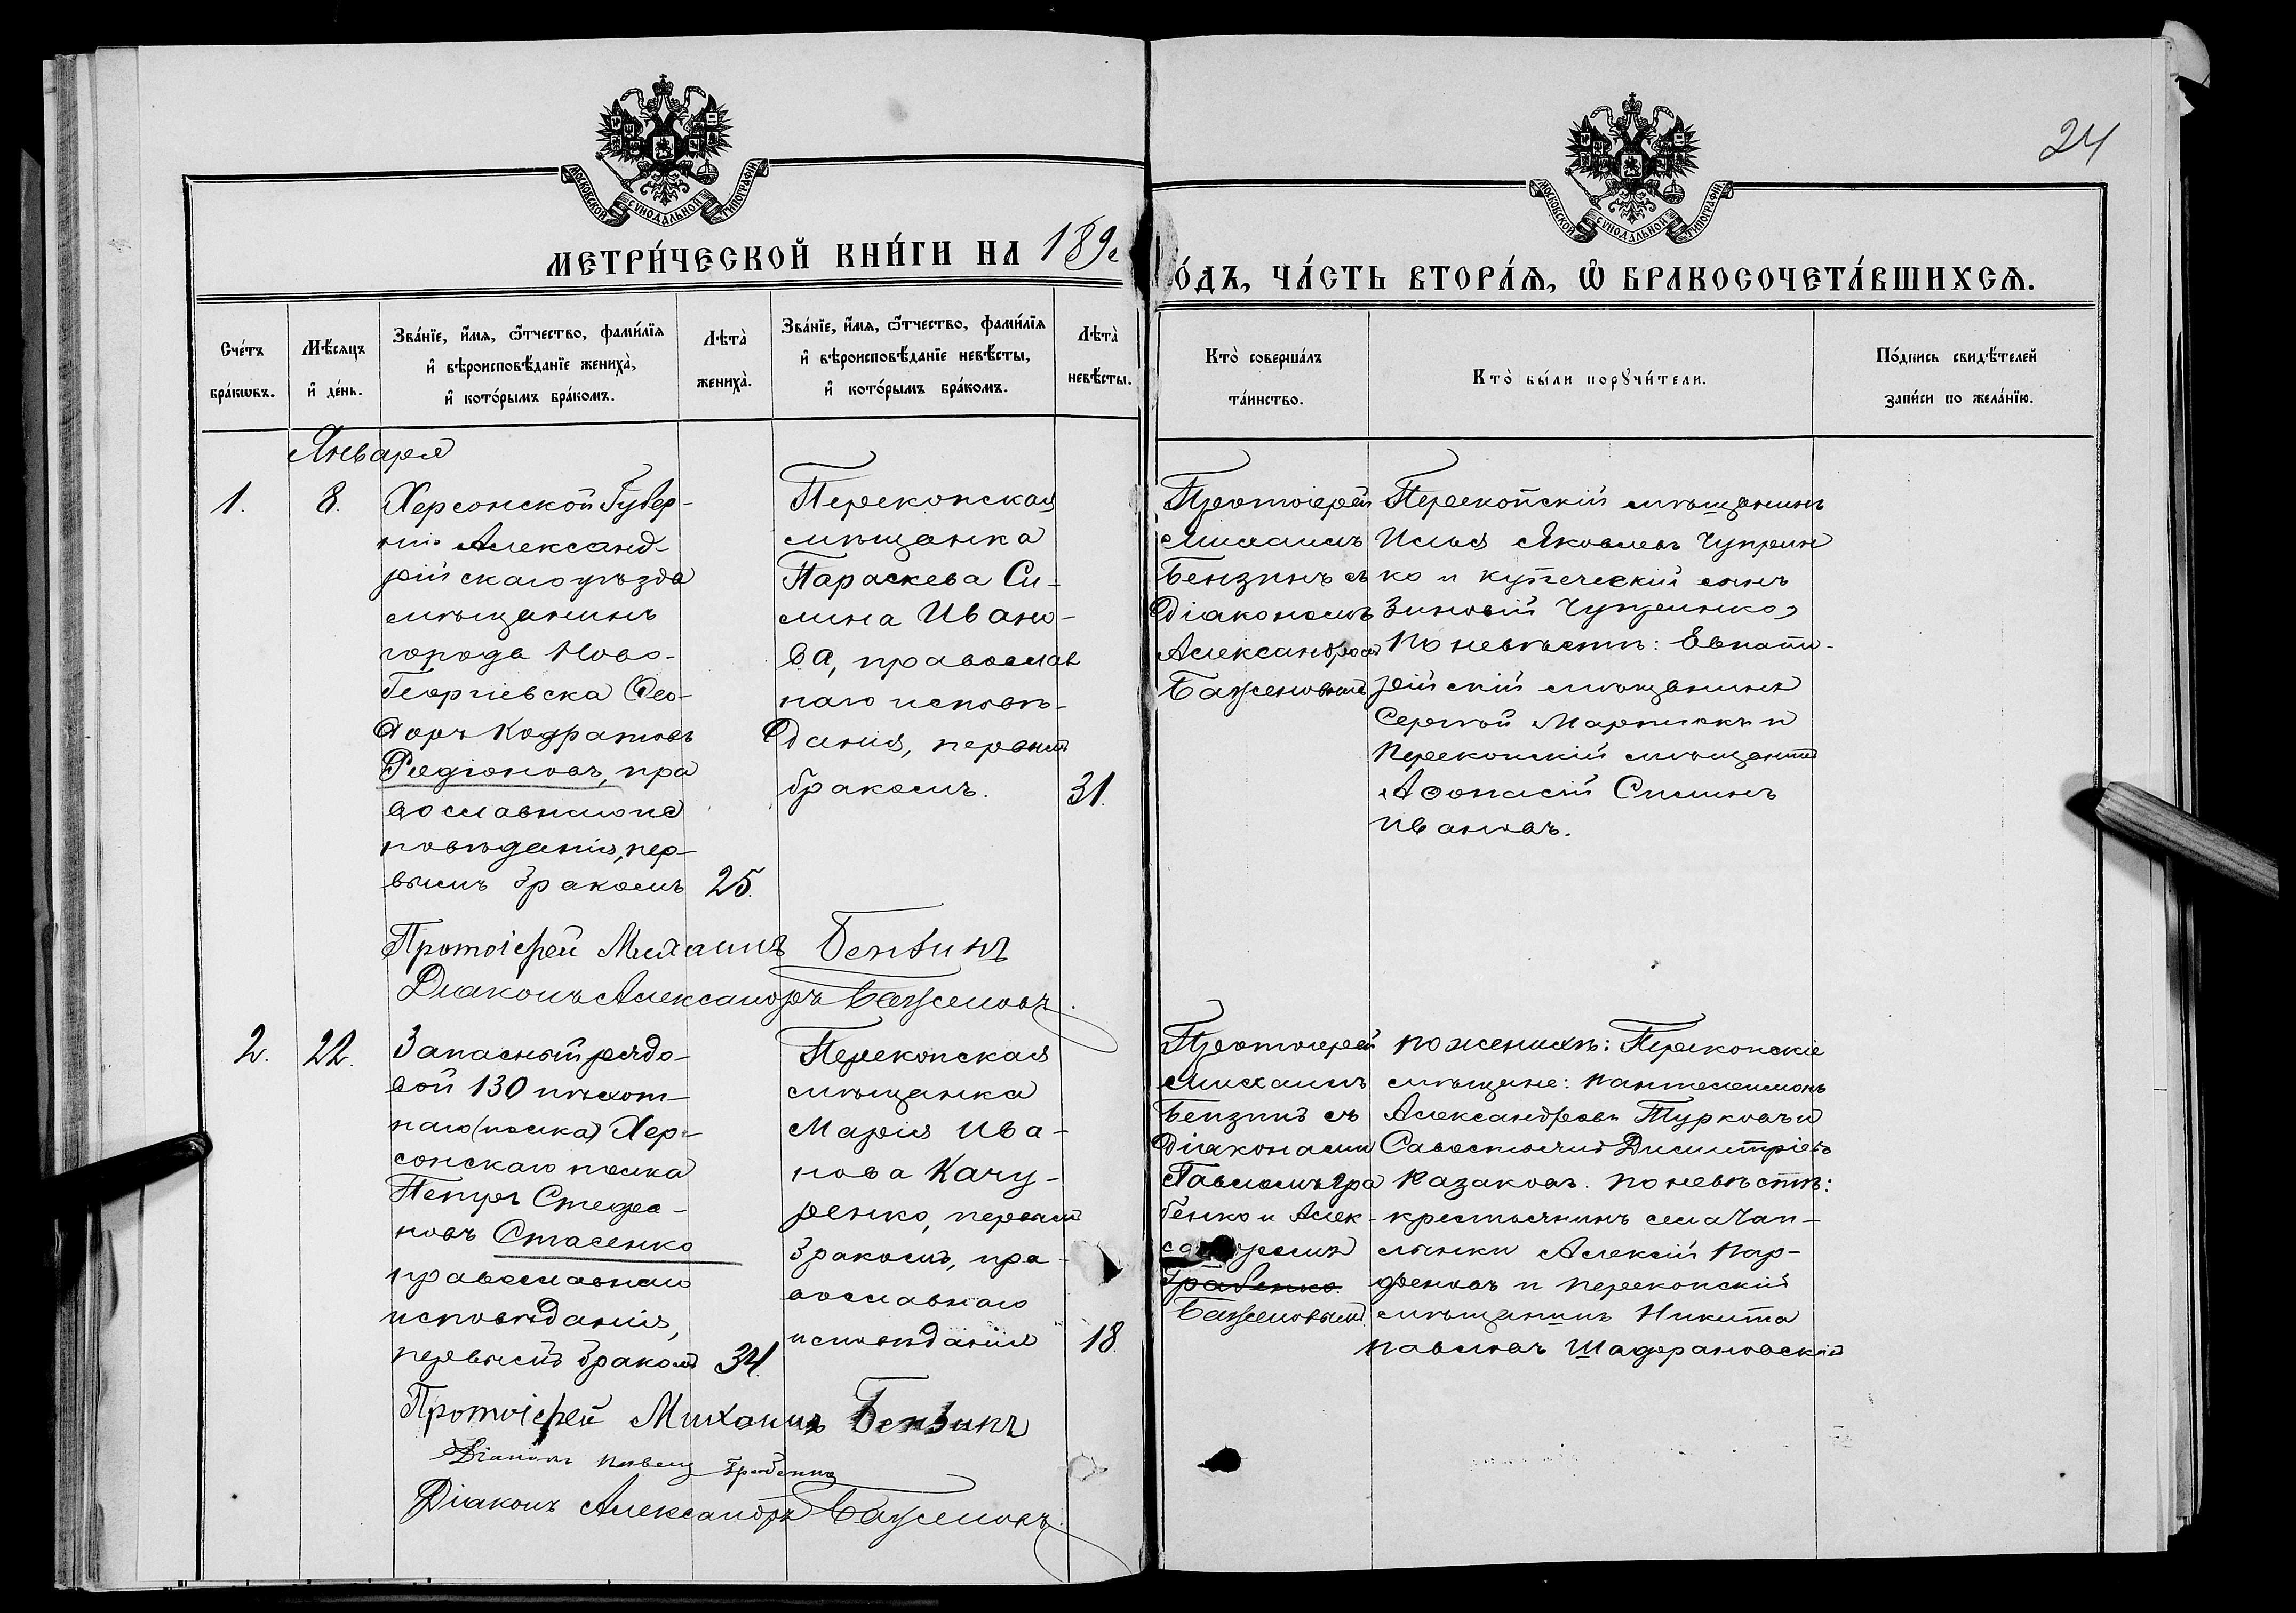 24
МОСКОВСКОЙ СУНОДАЛЬНОЙ ТИПОГРАФІИ
МОСКОВСКОЙ СУНОДАЛЬНОЙ ТИПОГРАФІИ
МЕТРИ́ЧЕСКОЙ КНИ́ГИ НА 189
О́ДЪ, ЧА́СТЬ ВТОРА́Ѧ, Ѽ БРАКОСОЧЕТА́ВШИХСѦ.
Сче́тъ
бра́кѡвъ.
Мѣ́сяцъ
и҆ де́нь.
Зва́нїе, и҆́мѧ, ѻ҆́тчество, фами́лїѧ
и҆ вѣроисповѣ́данїе жениха̀,
и҆ кото́рымъ бра́комъ.
Лѣта̀
жениха̀.
Зва́нїе, и҆́мѧ, ѻ҆́тчество, фами́лїѧ
и҆ вѣроисповѣ́данїе невѣ́сты,
и҆ кото́рымъ бра́комъ.
Лѣта̀
невѣ́сты.
Кто̀ соверша́лъ
та́инство.
Кто̀ бы́ли порꙋчи́тели.
По́дпись свидѣ́телей
за́писи по жела́нїю.
Января
1.
8.
Херсонской Губер-
ніи Александ-
рійскаго уѣзда
мѣщанинъ
города Ново-
Георгіевска Ѳео-
доръ Кодратовъ
Родіоновъ, пра
вославнаго ис
повѣданія, пер-
вымъ бракомъ
25.
Перекопская
мѣщанка
Параскева Си-
лина Ивано-
ва, православ
наго исповѣ-
данія, первымъ
бракомъ.
31.
Протоіерей
Михаилъ
Бензинъ съ
Діакономъ
Александромъ
Баженовымъ
Перекопскій мѣщанинъ
Илья Яковлевъ Чуприн
ко и купеческій сынъ
Зиновій Чупринко,
по невѣстѣ: Евпато-
рійскій мѣщанинъ
Сергѣй Мартинъ и
Перекопскій мѣщанинъ
Аѳонасій Силинъ
Ивановъ.
Протоіерей Михаилъ Бензинъ
Діаконъ Александръ Баженовъ.
2.
22.
Запасный рядо-
вой 130 пѣхот-
наго (полка) Хер-
сонскаго полка
Петръ Стефа-
новъ Стасенко
православнаго
исповѣданія,
первымъ бракомъ
34.
Перекопская
мѣщанка
Марія Ива-
нова Качу-
ренко, первымъ
бракомъ, пра-
вославнаго
исповѣданія
18.
Протоіерей
Михаилъ
Бензинъ съ
Діаконами
Павломъ Гра
бенко и Алек-
сандромъ
Грабенко
Баженовымъ.
по женихѣ: Перекопскіе
мѣщане: Пантелеимонъ
Александровъ Турковъ и
Савостьянъ Димитріевъ
Казаковъ. по невѣстѣ:
крестьянинъ села Чап-
лынки Алексій Пар-
феновъ и перекопскій
мѣщанинъ Никита
Павловъ Шафрановскій
Протоіерей Михаилъ Бензинъ
Діаконъ Павелъ Грабенко
Діаконъ Александръ Баженовъ.